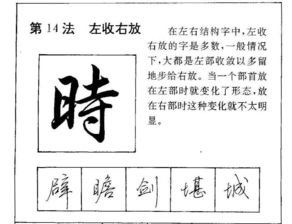 第14法 左收右放
時
在左右结构字中，左收
右放的字是多数，一般情况
下，大都是左部收敛以多留
地步给右放。当一个部首放
在左部时就变化了形态，放
在右部时这种变化就不太明
显。
辟 瞻 剑 堪 城